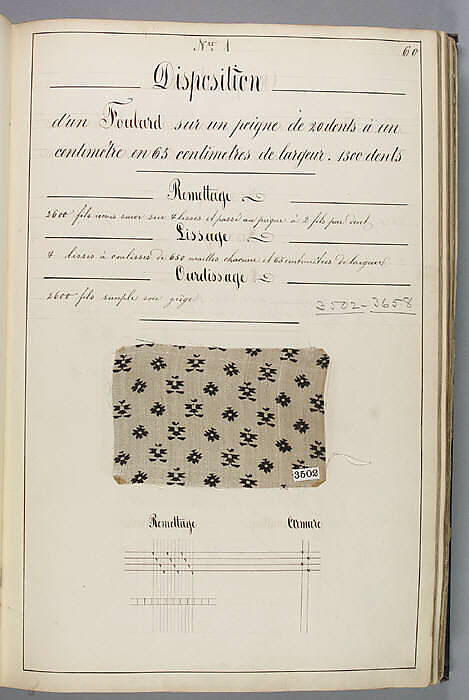 Nº 1
60
Disposition
d'un Foulard sur un peigne de 20 dents à un
centimètre en 65 centimètres de largeur. 1300 dents
Remettage
2600 fils sur 4 lisses et passé au peigne à 2 fils par dent
Lissage
4 lisses à coulisses de 650 mailles chacune et 65 centimètres de largeur
Ourdissage
2600 fils simple soie grège
3502-3658
3502
Remettage
Armure